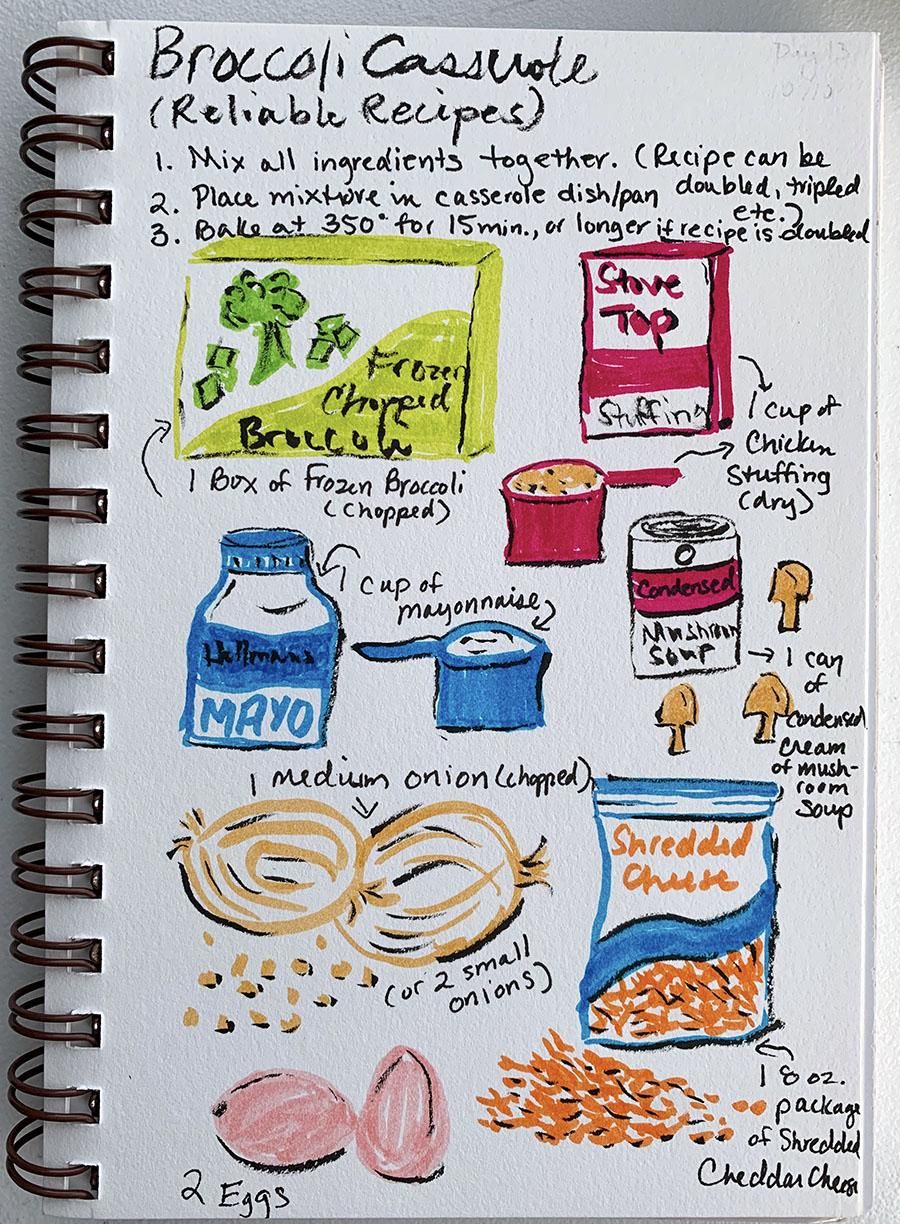 Broccoli Casserole
(Reliable Recipes)
1. Mix all ingredients together. (Recipe can be doubled, tripled etc.)
2. Place mixture in casserole dish/pan
3. Bake at 350° for 15min., or longer if recipe is doubled
Frozen
Chopped
Broccoli
1 Box of Frozen Broccoli
(Chopped)
Stove
Top
Stuffing
1 cup of
Chicken
Stuffing
(dry)
Hellmans
MAYO
1 cup of
mayonnaise
Condensed
Mushroom
Soup
1 can
of
condensed
cream
of mush-
room
soup
1 medium onion (chopped)
(or 2 small
onions)
Shredded
Cheese
1 8 oz.
package
of Shredded
Cheddar Cheese
2 Eggs